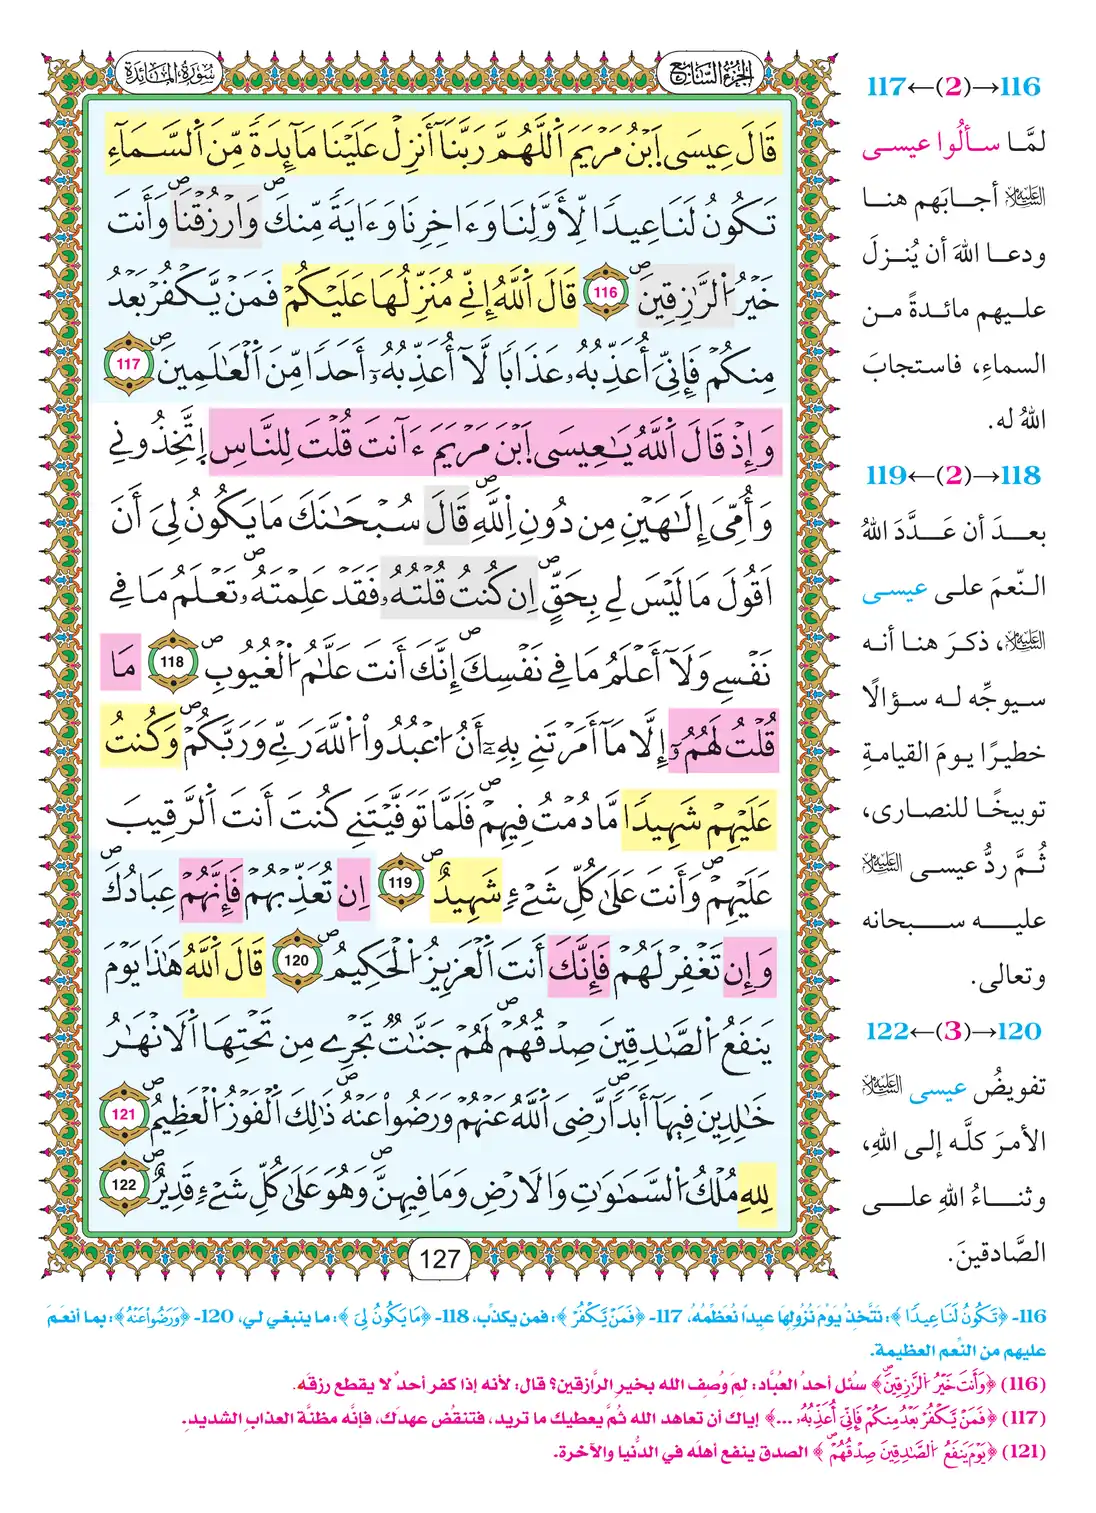 الجزء السابع
سورة المائدة
قَالَ عِيسَى اَبْنُ مَرْيَمَ اَللَّهُمَّ رَبَّنَا أَنزِلْ عَلَيْنَا مَآئِدَةً مِّنَ اَلسَّمَآءِ
تَكُونُ لَنَا عِيدًا لِّأَوَّلِنَا وَءَاخِرِنَا وَءَايَةً مِّنكَ وَارْزُقْنَا وَأَنتَ
خَيْرُ اُلرَّٰزِقِينَ 116 قَالَ اَللَّهُ إِنِّي مُنَزِّلُهَا عَلَيْكُمْ فَمَنْ يَّكْفُرْ بَعْدُ
مِنكُمْ فَإِنِّيَ أُعَذِّبُهُۥ عَذَابًا لَّآ أُعَذِّبُهُۥٓ أَحَدًا مِّنَ اَلْعَٰلَمِينَ 117
وَإِذْ قَالَ اَللَّهُ يَٰعِيسَى اَبْنَ مَرْيَمَ ءَآنتَ قُلْتَ لِلنَّاسِ اِتَّخِذُونِي
وَأُمِّيَ إِلَٰهَيْنِ مِن دُونِ اِللَّهِ قَالَ سُبْحَٰنَكَ مَا يَكُونُ لِيَ أَنْ
اَقُولَ مَا لَيْسَ لِي بِحَقٍّ اِن كُنتُ قُلْتُهُۥ فَقَدْ عَلِمْتَهُۥ تَعْلَمُ مَا فِي
نَفْسِي وَلَآ أَعْلَمُ مَا فِي نَفْسِكَ إِنَّكَ أَنتَ عَلَّٰمُ اُلْغُيُوبِ 118 مَا
قُلْتُ لَهُمُۥٓ إِلَّا مَآ أَمَرْتَنِي بِهِۦٓ أَنُ اُعْبُدُوا اُللَّهَ رَبِّي وَرَبَّكُمْ وَكُنتُ
عَلَيْهِمْ شَهِيدًا مَّا دُمْتُ فِيهِمْ فَلَمَّا تَوَفَّيْتَنِي كُنتَ أَنتَ اَلرَّقِيبَ
عَلَيْهِمْ وَأَنتَ عَلَىٰ كُلِّ شَيْءٍ شَهِيدٌ 119 اِن تُعَذِّبْهُمْ فَإِنَّهُمْ عِبَادُكَ
وَإِن تَغْفِرْ لَهُمْ فَإِنَّكَ أَنتَ اَلْعَزِيزُ اُلْحَكِيمُ 120 قَالَ اَللَّهُ هَٰذَا يَوْمَ
يَنفَعُ اُلصَّٰدِقِينَ صِدْقُهُمْ لَهُمْ جَنَّٰتٌ تَجْرِي مِن تَحْتِهَا اَلْأَنْهَٰرُ
خَٰلِدِينَ فِيهَآ أَبَدًا رَّضِيَ اَللَّهُ عَنْهُمْ وَرَضُوا عَنْهُ ذَٰلِكَ اَلْفَوْزُ اُلْعَظِيمُ 121
لِلهِ مُلْكُ اُلسَّمَٰوَٰتِ وَالَارْضِ وَمَا فِيهِنَّ وَهُوَ عَلَىٰ كُلِّ شَيْءٍ قَدِيرٌ 122
127
116→(2)←117
لمَّا سألُوا عيسى
عليه السلام أجابَهم هنا
ودعا اللهَ أن يُنزلَ
عليهم مائدةً من
السماءِ، فاستجابَ
اللهُ له.
118→(2)←119
بعدَ أن عَدَّدَ اللهُ
النّعمَ على عيسى
عليه السلام، ذكرَ هنا أنه
سيوجِّه له سؤالًا
خطيرًا يومَ القيامةِ
توبيخًا للنصارى،
ثُمَّ ردُّ عيسى عليه السلام
عليه سبحانه
وتعالى.
120→(3)←122
تفويضُ عيسى عليه السلام
الأمرَ كلَّه إلى اللهِ،
وثناءُ اللهِ على
الصَّادقينَ.
116- ﴿تَكُونُ لَنَا عِيدًا﴾: نَتَّخِذُ يَوْمَ نُزُولِهَا عِيدًا نُعَظِّمُهُ، 117- ﴿فَمَنْ يَّكْفُرْ﴾: فمن يكذِّب، 118- ﴿مَا يَكُونُ لِيَ﴾: ما ينبغي لي، 120- ﴿وَرَضُوا عَنْهُ﴾: بما أنعَمَ
عليهم من النِّعم العظيمة.
(116) ﴿وَأَنتَ خَيْرُ اُلرَّٰزِقِينَ﴾ سُئل أحدُ العُبَّاد: لمَ وُصِف الله بخيرِ الرَّازقين؟ قال: لأنه إذا كفر أحدٌ لا يقطع رزقَه.
(117) ﴿فَمَنْ يَّكْفُرْ بَعْدُ مِنكُمْ فَإِنِّيَ أُعَذِّبُهُۥ ...﴾ إياك أن تعاهد الله ثُمَّ يعطيك ما تريد، فتنقُض عهدَك، فإنَّه مظنَّة العذابِ الشديدِ.
(121) ﴿يَوْمَ يَنفَعُ اُلصَّٰدِقِينَ صِدْقُهُمْ﴾ الصدق ينفع أهلَه في الدُّنيا والآخرة.